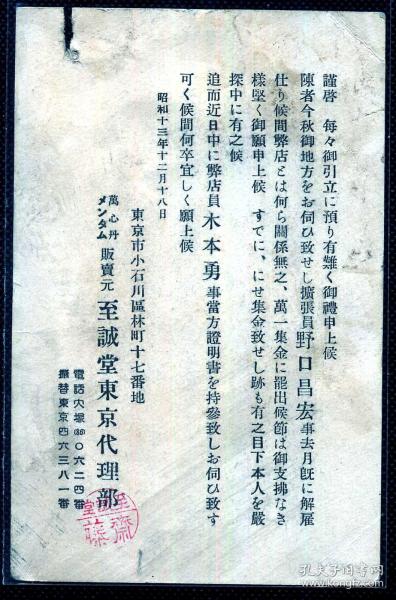 謹啓 每々御引立に預り有難く御禮申上候
陳者今秋御地方をお伺ひ致せし擴張員野口昌宏事去月既に解雇
仕り候間弊店とは何ら關係無之、萬一集金に罷出候節は御支拂なき
樣堅く御願申上候 すでに、にせ集金致せし跡も有之目下本人を嚴
探中に有之候
追而近日中に弊店員木本勇事當方證明書を持參致しお伺ひ致す
可く候間何卒宜しく願上候
昭和十三年十二月十八日
東京市小石川區林町十七番地
萬心丹
メンタム
販賣元 至誠堂東京代理部
電話大塚㊏〇六二四番
振替東京四六三八一番
齋藤
孔夫子旧书网
www.kongfz.com